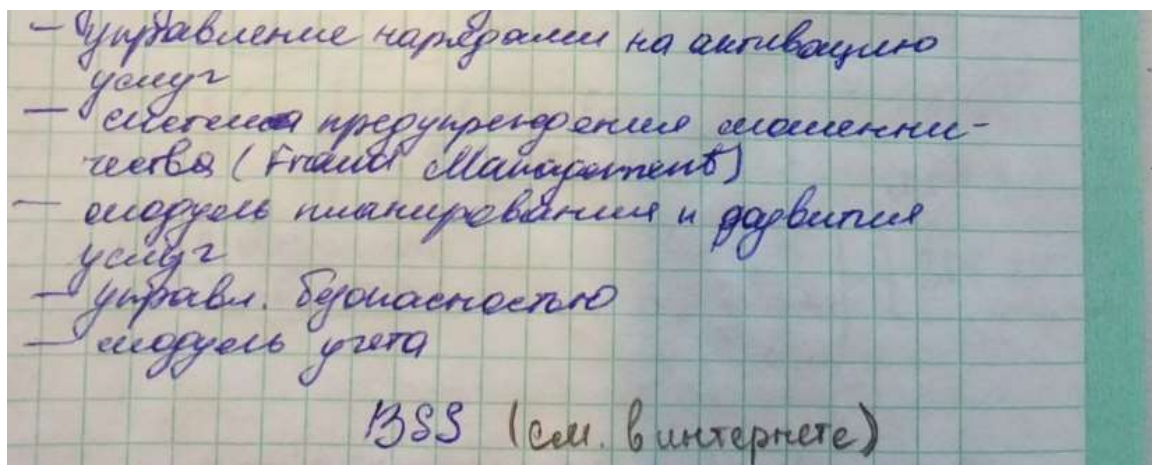 - управление нарядами на активацию
услуг
- система предупреждения мошенни-
чества (Fraud Management)
- модуль планирования и развития
услуг
- управл. безопасностью
- модуль учета
BSS (см. в интернете)